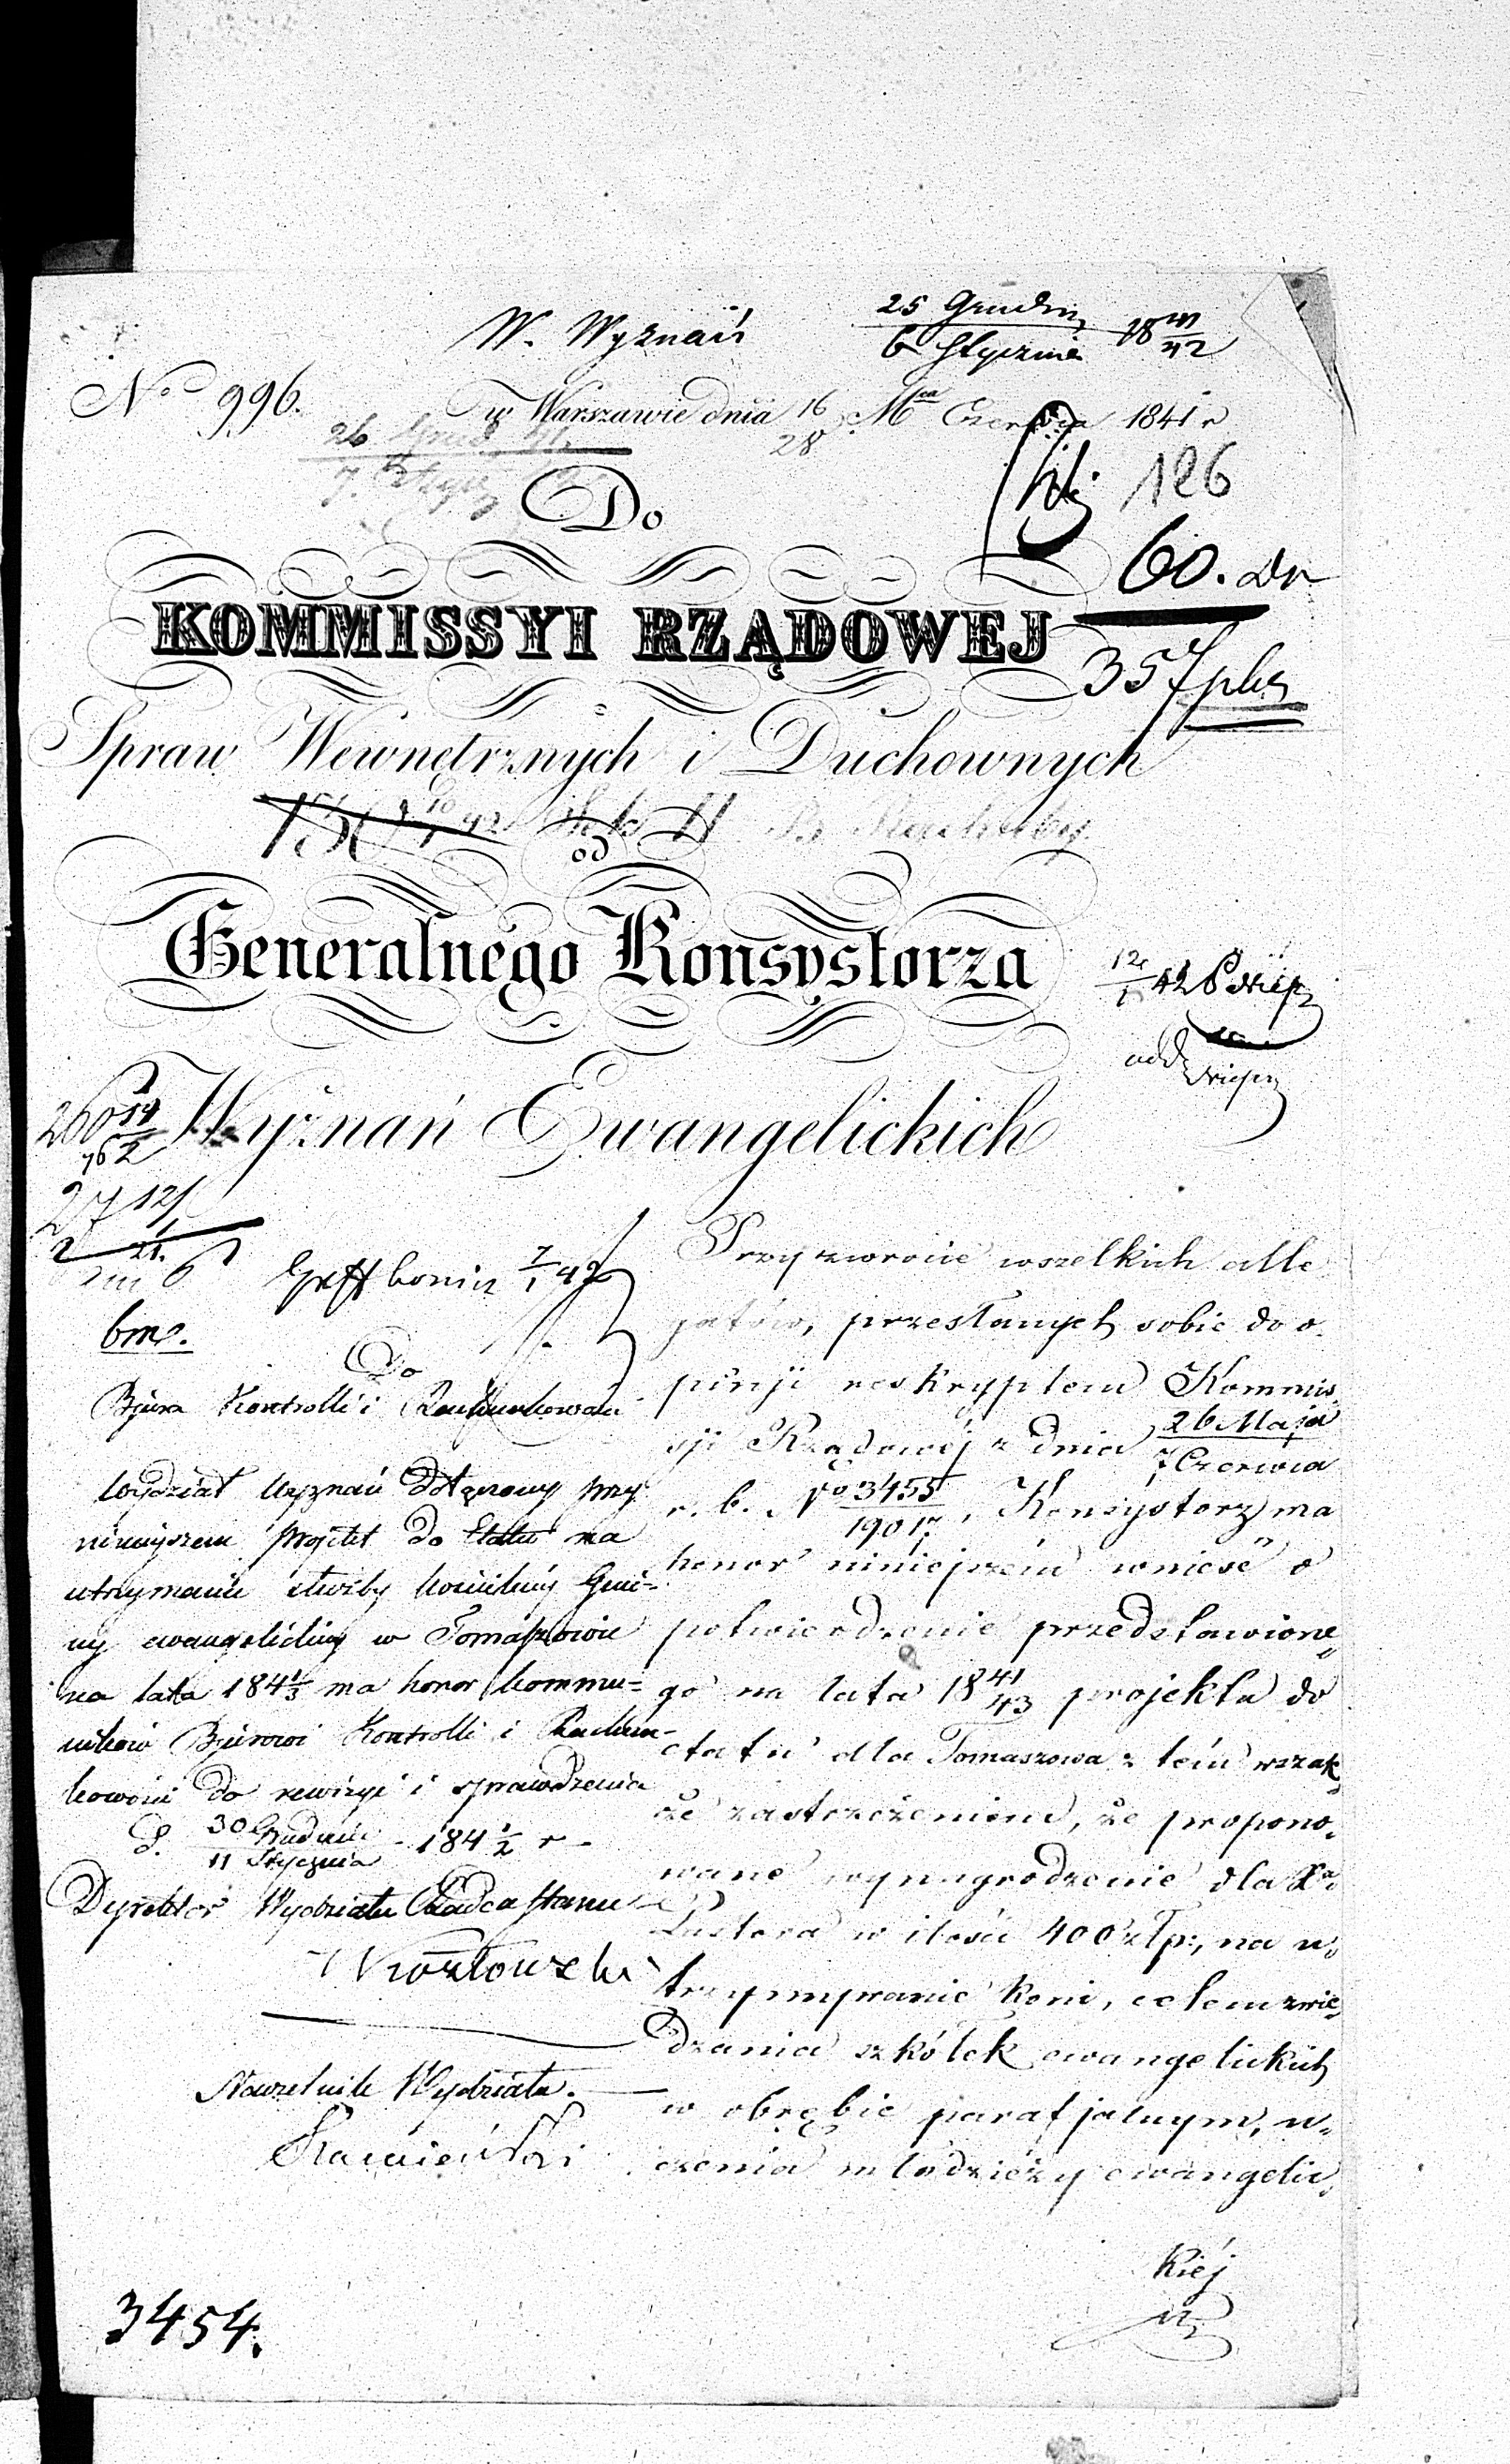 W. Wyznań
25 Grudnia
6 Stycznia 18 41/42
No 996.
w Warszawie dnia 16/28 Mca Czerwca 1841 r
26 Grud 41
7. Stycz
Do
126
60. dr
KOMMISSYI RZĄDOWEJ
357
Spraw Wewnętrznych i Duchownych
od
Generalnego Konsystorza
12/1 42
Wyznań Ewangelickich
7/1 42
Do
Bjura Kontrolli i Rachunkowości
Wydział Wyznań dołączony przy
niniejszem projekt do Etatu na
utrzymanie służby kościelnéj Gmi=
ny ewangelickiéj w Tomaszowie
na lata 184 1/3 ma honor kommu=
nikować Bjurowi Kontrolli i Rachun=
kowości do rewizyi i sprawdzenia
d. 30 Grudnia
11 Stycznia - 184 1/2 r -
Dyrektor Wydziału Radca Stanu
Kozłowski
Naczelnik Wydziału.
Przy zwrocie wszelkich alle
gatów, przesłanych sobie do o„
pinji reskryptem Kommis„
sji Rządowéj z dnia 26 Maja
7 Czerwca
r. b. No 3455
19017, Konsystorz ma
honor niniejszém wnieść o
potwierdzenie przedstawione„
go na lata 18 41/43 projektu do
etatu dla Tomaszowa z tém wszak„
że zastrzeżeniem, że propono„
wane wynagrodzenie dla Xa
Pastora w ilości 400 złp:, na u„
trzymywanie koni, celem zwie„
dzania szkółek ewangelickich
w obrębie parafjalnym, u„
czenia młodzieży ewangelic„
kiéj
3454.